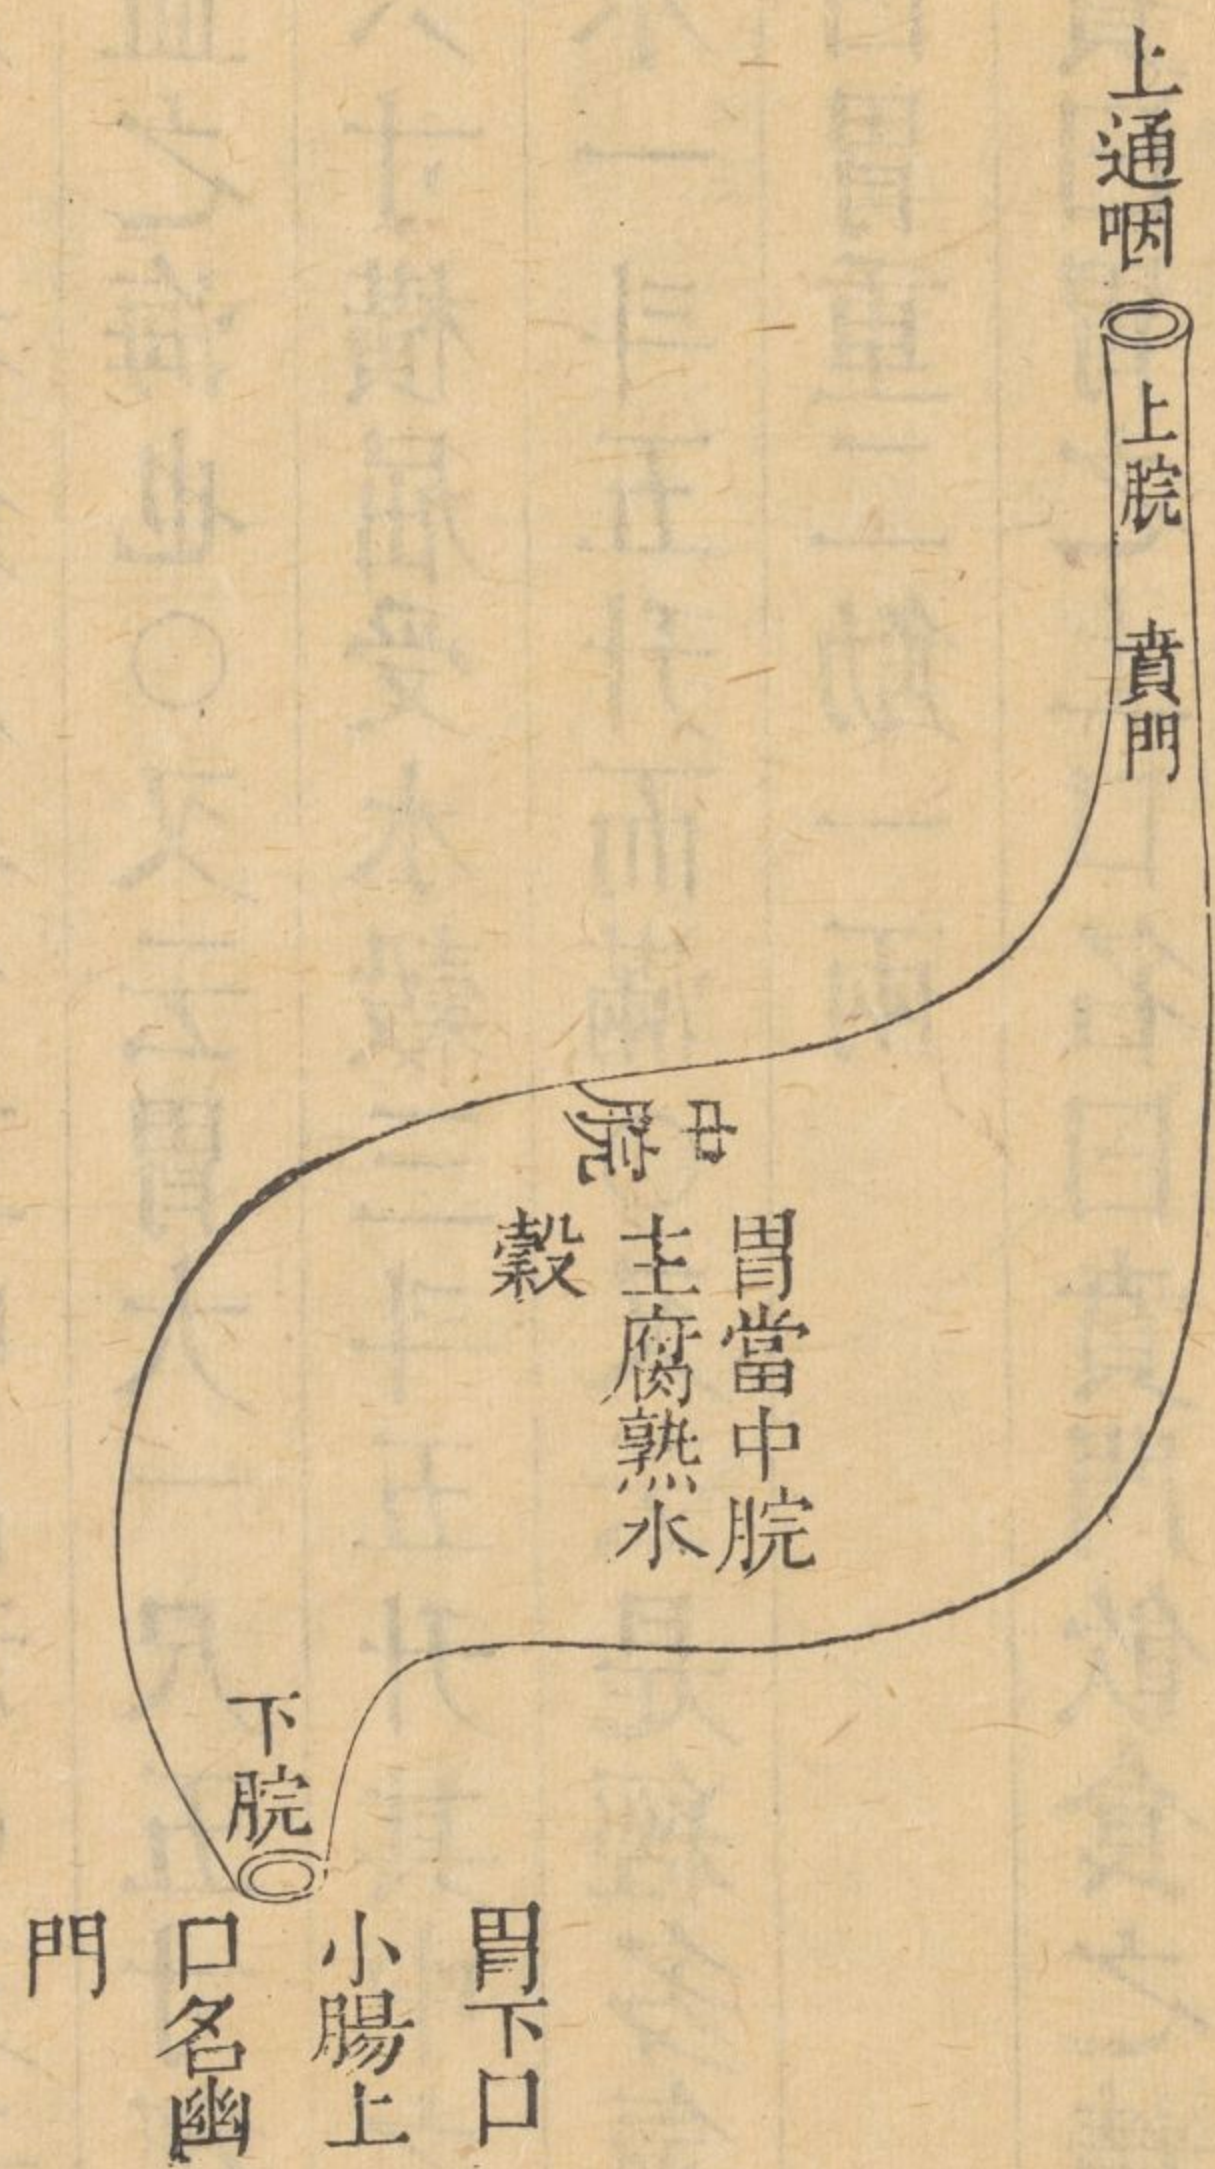 上通咽
上脘
賁門
中脘
胃當中脘
主腐熟水
穀
下脘
胃下口
小腸上
口名幽
門